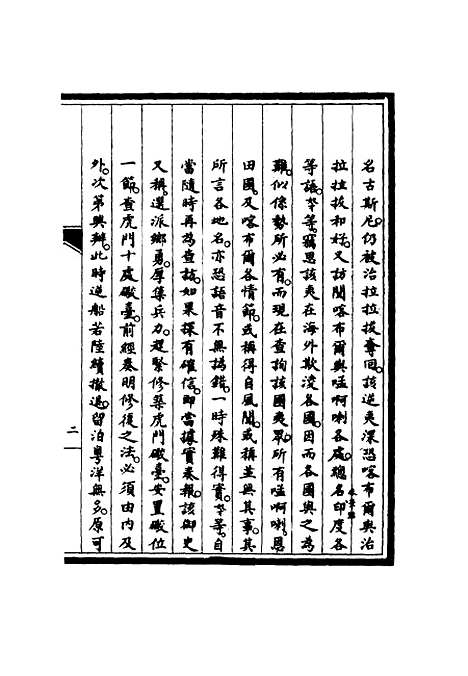 名古斯尼仍被治拉拉拔奪回該逆夷深恐喀布爾與治
拉拉拔和好又訪聞喀布爾與㗲啊喇各處總名印度各
等語臣等竊思該夷在海外欺凌各國因而各國與之為
難似係勢所必有而現在查拘該國夷眾所有㗲啊喇恩
田國及喀布爾各情節或稱得自風聞或稱並無其事其
所言各地名亦恐語音不無譌錯一時殊難得實臣等自
當隨時再為查訪如果探有確信即當據實奏報該御史
又稱選派鄉勇厚集兵力趕緊修築虎門礮臺安置礮位
一節查虎門十處礮臺前經奏明修復之法必須由內及
外次第興辦此時逆船若陸續撤退留泊粵洋無多原可
二